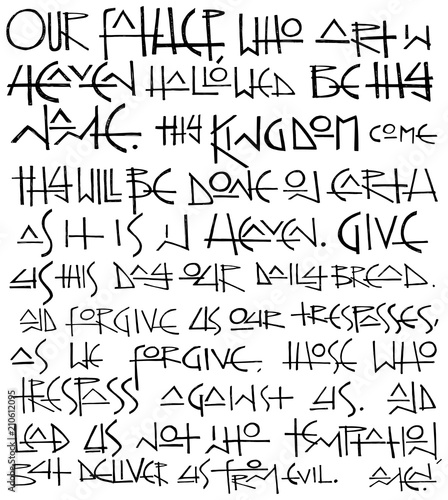 OUR FATHER, WHO ART IN
HEAVEN HALLOWED BE THY
NAME. THY KINGDOM COME
THY WILL BE DONE ON EARTH
AS IT IS IN HEAVEN. GIVE
US THIS DAY OUR DAILY BREAD.
AND FORGIVE US OUR TRESPASSES,
AS WE FORGIVE THOSE WHO
TRESPASS AGAINST US. AND
LEAD US NOT INTO TEMPTATION
BUT DELIVER US FROM EVIL. AMEN.
Adobe Stock
Adobe Stock | #210612095